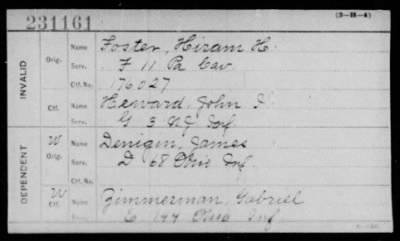 231161 (3-H-4)
INVALID
Orig. Name Foster, Hiram H.
Serv. F 11 Pa Cav.
Ctf. No. 176027
Ctf. Name Heward, John I.
Serv. G 3 N.J. Inf.
DEPENDENT
W Orig. Name Denigin, James
Serv. D 68 Ohio Inf.
Ctf. No.
W Ctf. Name Zimmerman, Gabriel
Serv. E 144 Ohio Inf.